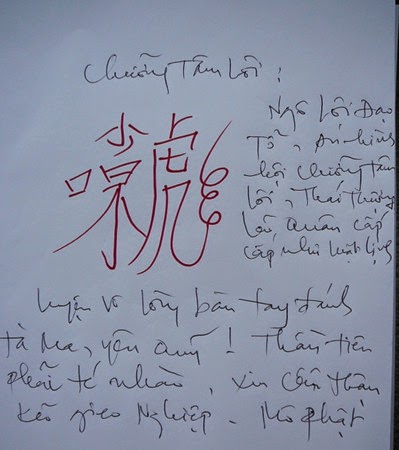 Chưởng Tâm Lôi :
Ngô Lôi Đạo
Tổ, Án hình
lôi chưởng tâm
lôi, Thái Thượng
Lão Quân cấp
cấp như luật lịnh
Luyện vô lòng bàn tay đánh
tà ma, yêu quỷ! Thần tiên
phải té nhào, xin cẩn thận
kẻo gieo Nghiệp. Mô Phật